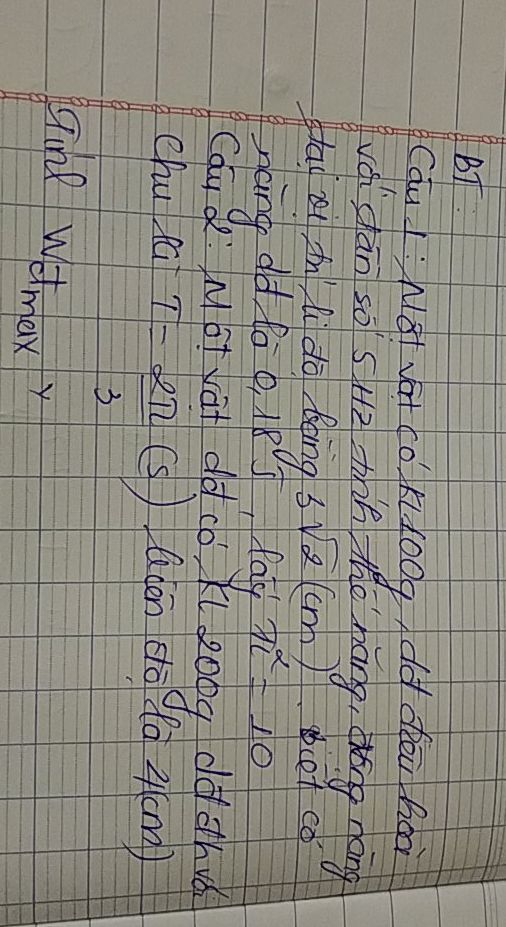 BT
Câu 1: Một vật có kl 100g, dđ điều hoà
với tần số 5 Hz tính thế năng, động năng
tại vị trí li độ bằng 3√2 (cm) biết cơ
năng dđ là 0,18 J, lấy π² = 10
Câu 2: Một vật dđ có kl 200g dđ đh với
chu kì T = 2π/3 (s) biên độ là 4(cm)
Tính Wđmax